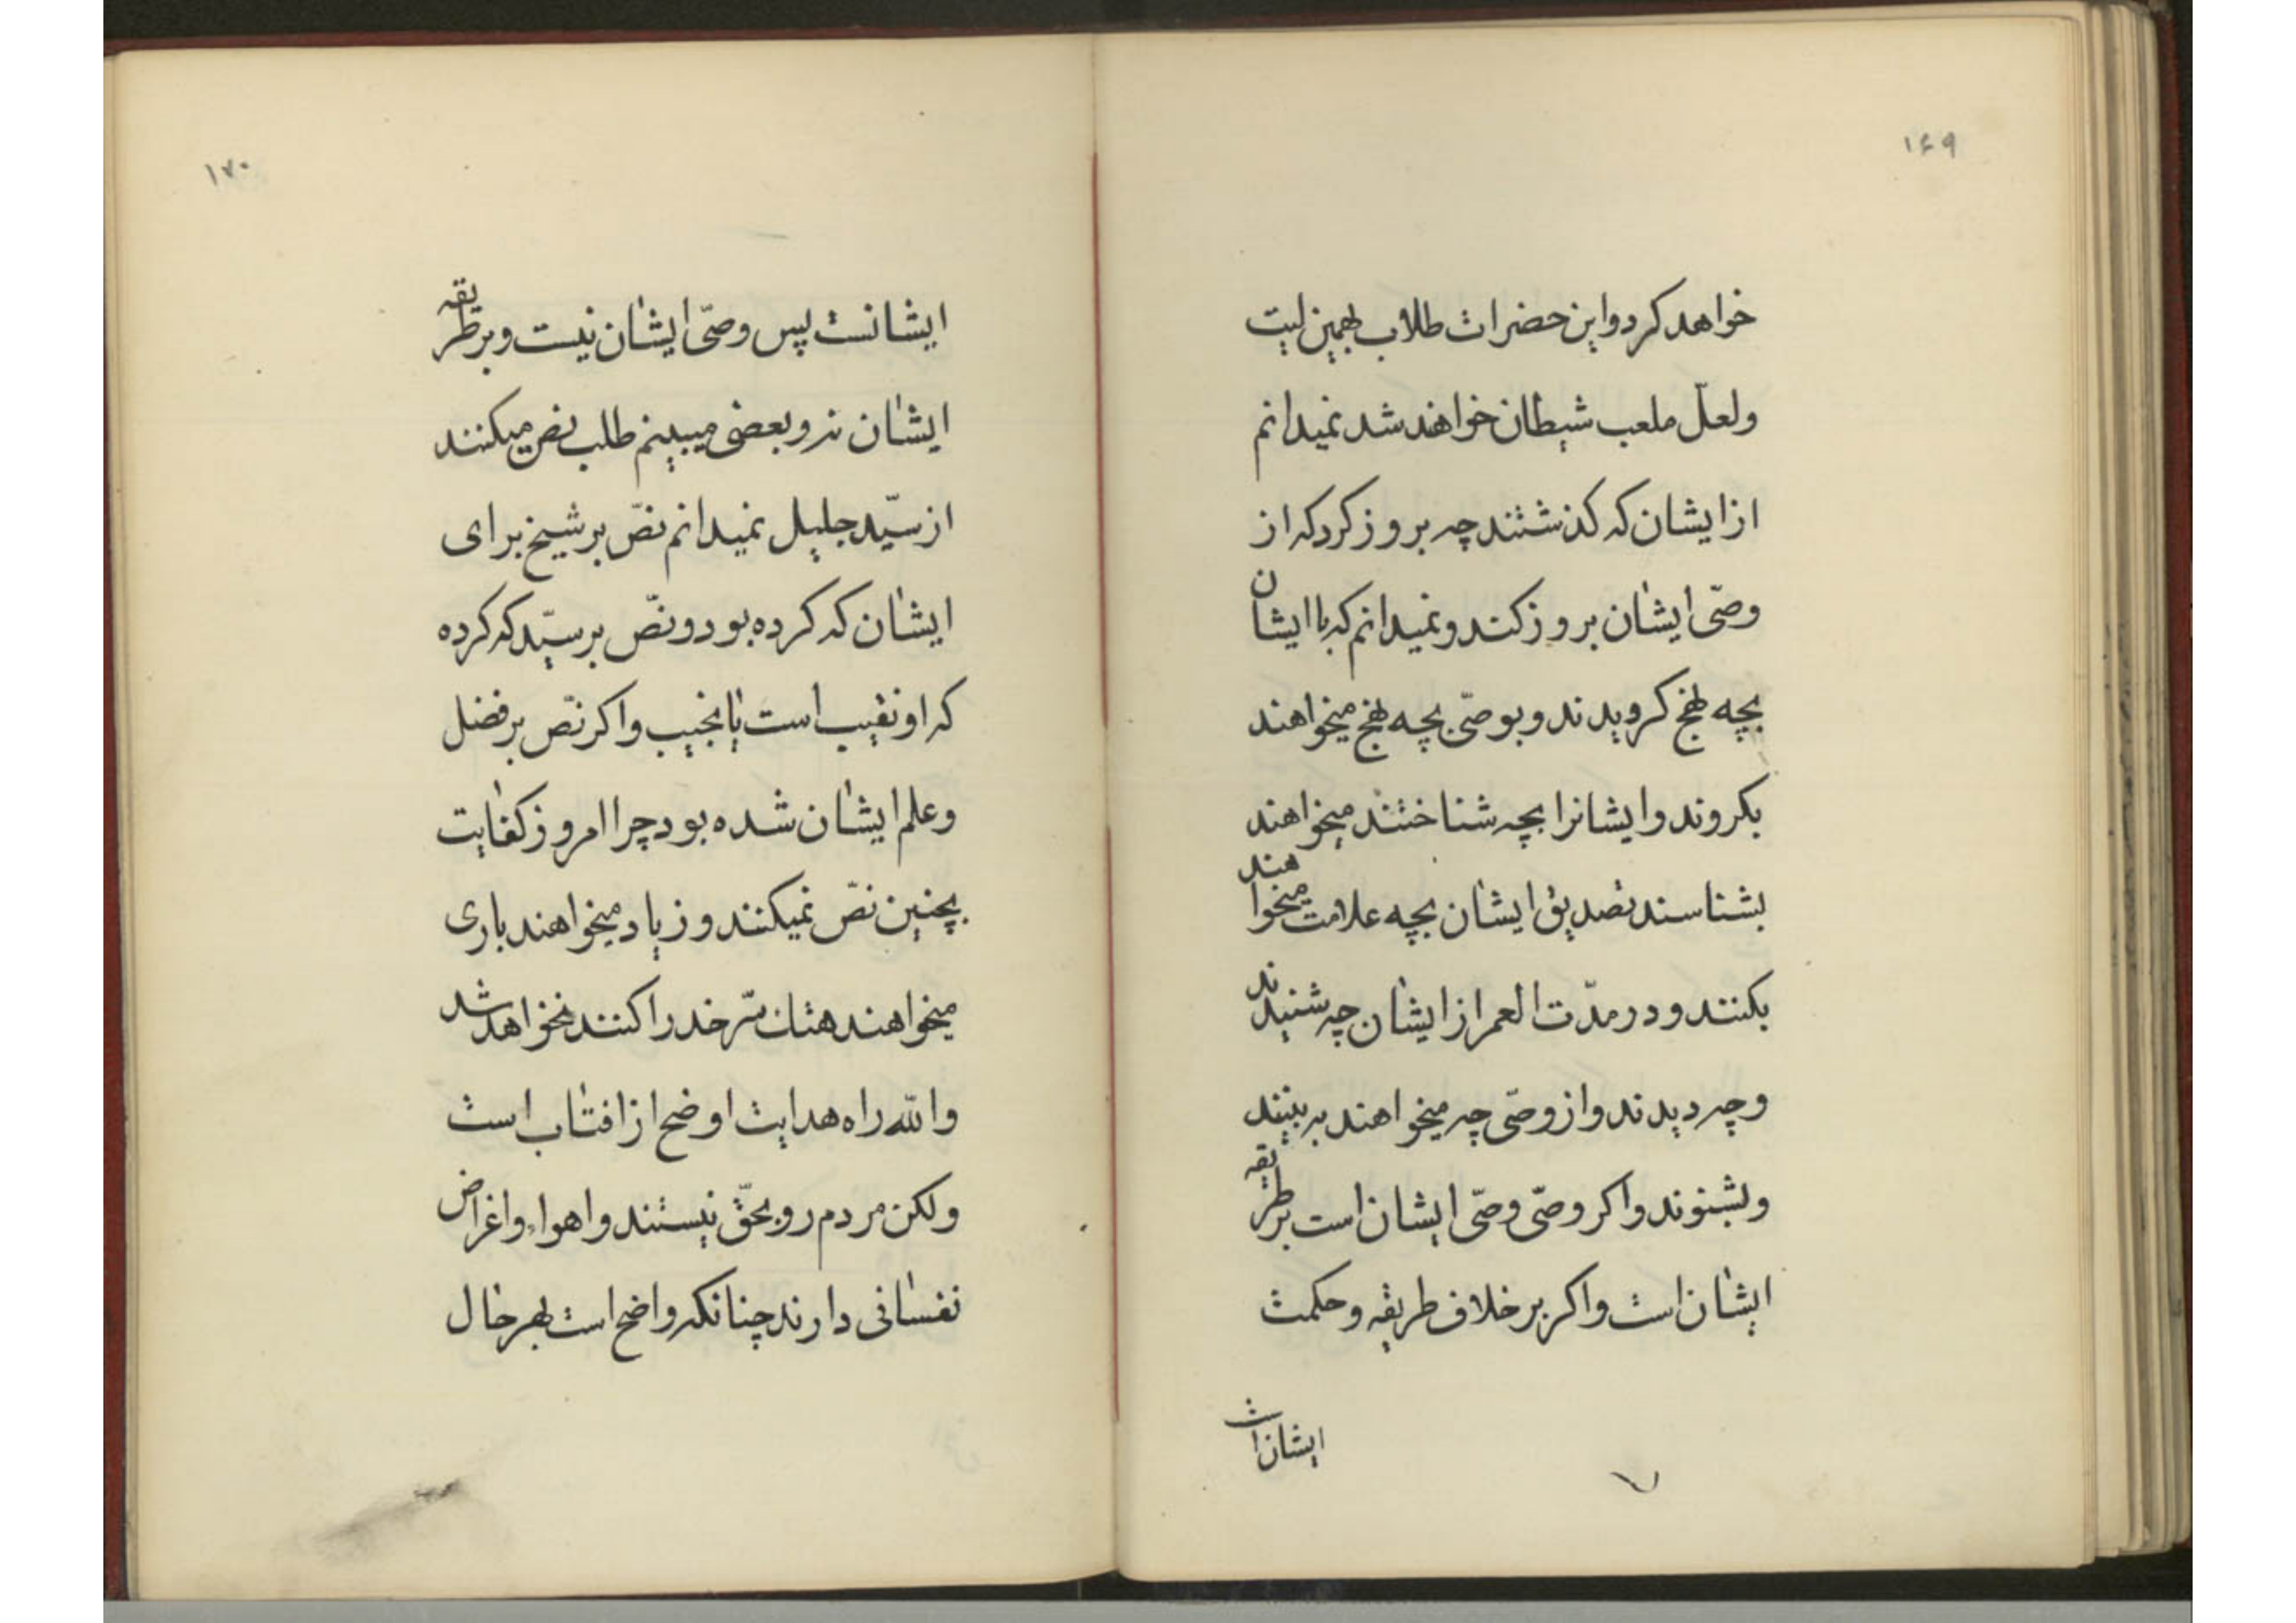 ۱۶۹
خواهد کرد و این حضرات طلاب بهمین لیت
ولعلّ ملعب شیطان خواهند شد نمیدانم
از ایشان که کذشتند چه بروز کرد که از
وصّی ایشان بروز کند و نمیدانم که با ایشان
بچه نهج کرویدند و بوصّی بچه نهج میخواهند
بکروند و ایشانرا بچه شناختند میخواهند
بشناسند تصدیق ایشان بچه علامت میخواهند
بکنند و در مدّت العمر از ایشان چه شنیدند
و چه دیدند و از وصّی چه میخواهند به بینند
و بشنوند و اکر وصّی وصّی ایشان است بر طریقه
ایشان است و اکر بر خلاف طریقه و حکمت
ایشان است
۱۷۰
ایشانست پس وصّی ایشان نیست و بر طریقه
ایشان نه و بعضی میبینم طلب نص میکنند
از سیّد جلیل نمیدانم نصّ بر شیخ برای
ایشان که کرده بود و نصّ بر سیّد که کرده
که او نقیب است یا نجیب و اکر نصّ بر فضل
و علم ایشان شده بود چرا امروز کفایت
بچنین نصّ نمیکنند و زیاد میخواهند باری
میخواهند خدر را کنند نخواهد شد
والله راه هدایت اوضح از افتاب است
ولکن مردم رو بحقّ نیستند و اهواء و اغراض
نفسانی دارند چنانکه واضح است بهر حال